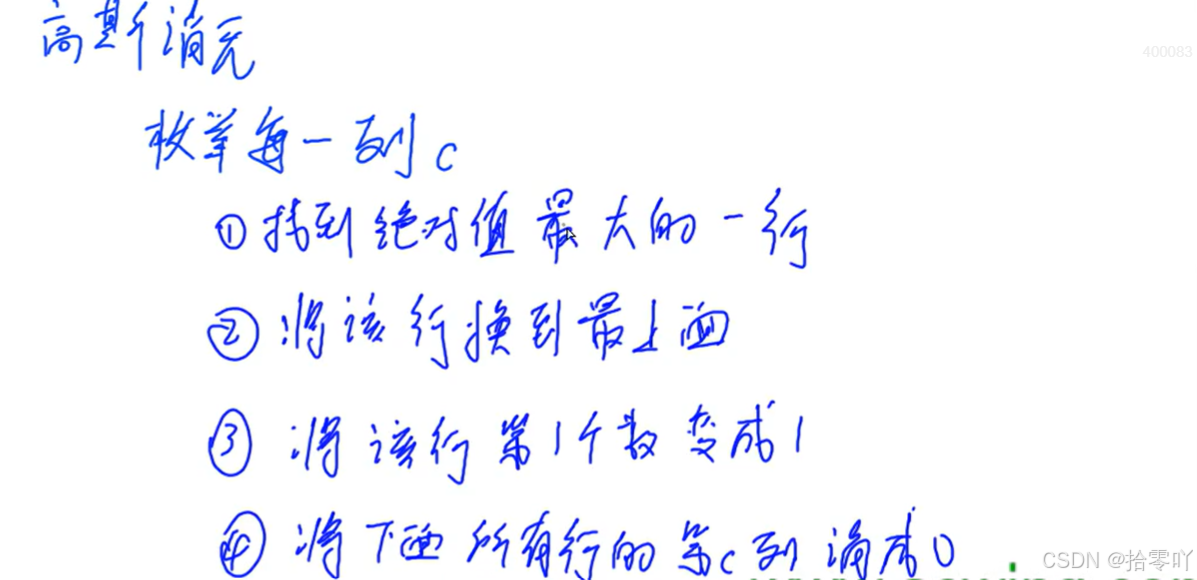 高斯消元
400083
枚举每一列c
①找到绝对值最大的一行
②将该行换到最上面
③将该行第1个数变成1
④将下面所有行的第c列消成0
CSDN @拾零吖